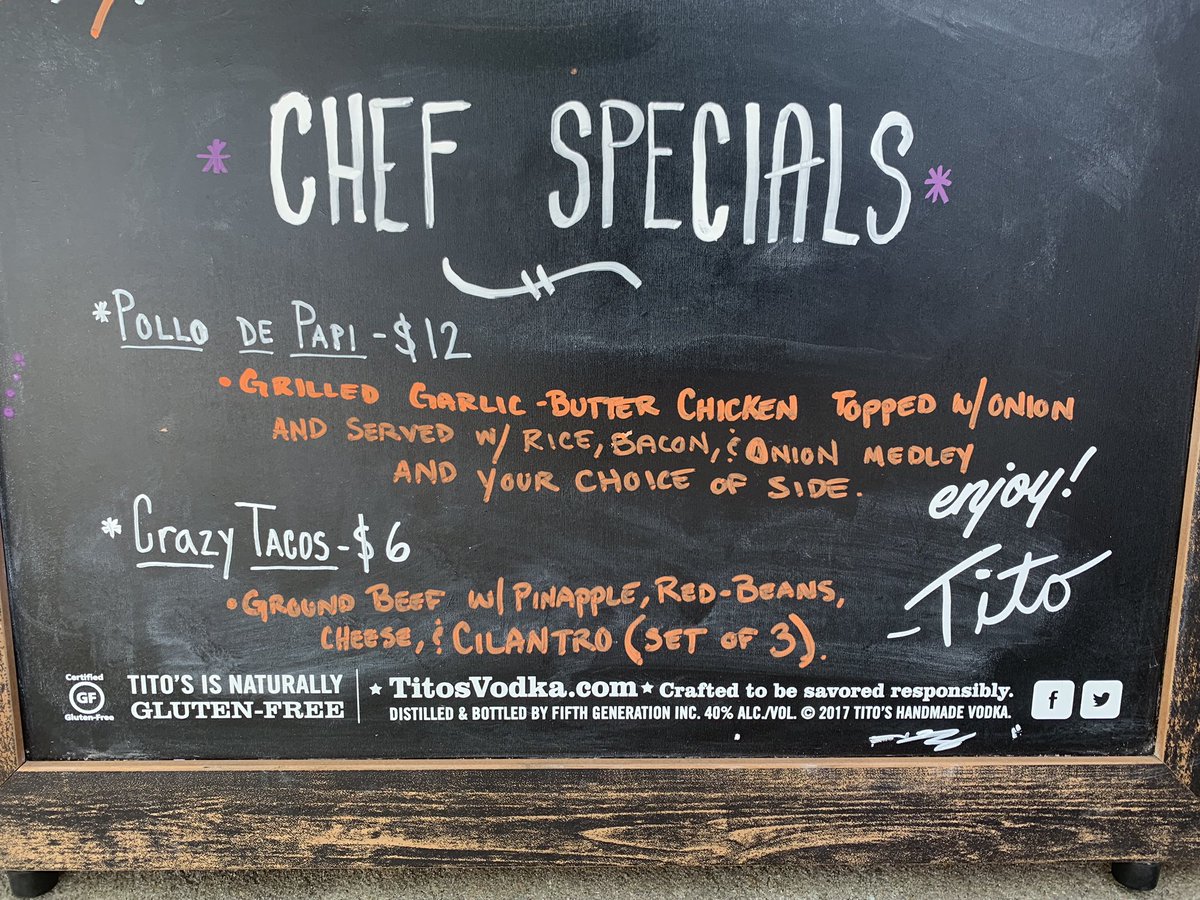 * CHEF SPECIALS *
*POLLO DE PAPI - $12
• GRILLED GARLIC-BUTTER CHICKEN TOPPED W/ONION
AND SERVED W/ RICE, BACON, & ONION MEDLEY
AND YOUR CHOICE OF SIDE.
enjoy!
* Crazy TACOS - $6
-Tito
• GROUND BEEF W/ PINAPPLE, RED-BEANS,
CHEESE, & CILANTRO (SET OF 3).
Certified
GF
Gluten-Free
TITO'S IS NATURALLY
GLUTEN-FREE
★ TitosVodka.com ★ Crafted to be savored responsibly.
DISTILLED & BOTTLED BY FIFTH GENERATION INC. 40% ALC./VOL. © 2017 TITO'S HANDMADE VODKA.
f